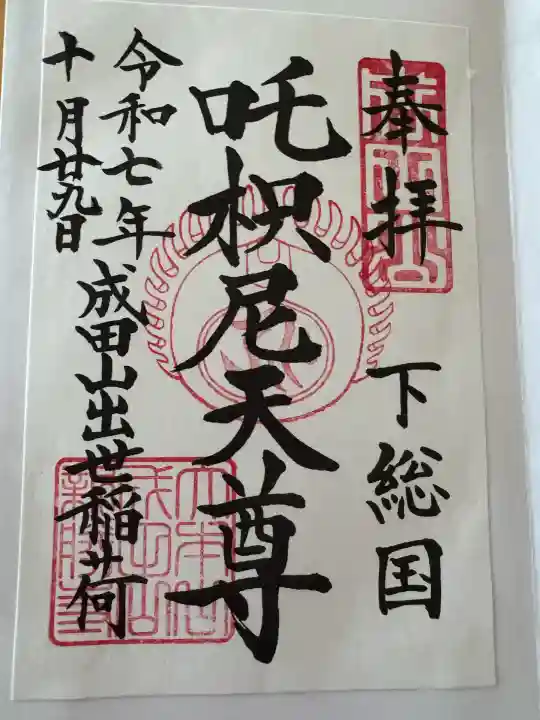 奉拝 下総国
吒枳尼天尊
令和七年
十月廿九日
成田山出世稲荷
成田山